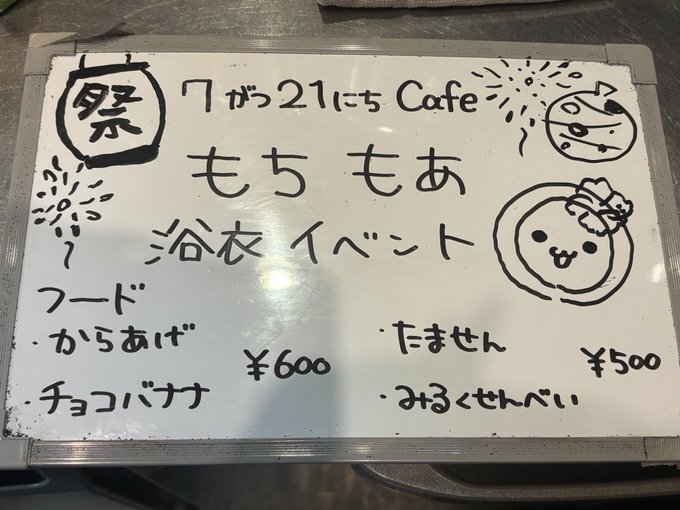 祭
7がつ21にち Cafe
もちもあ
浴衣イベント
フード
・からあげ ¥600
・チョコバナナ
・たません ¥500
・みるくせんべい